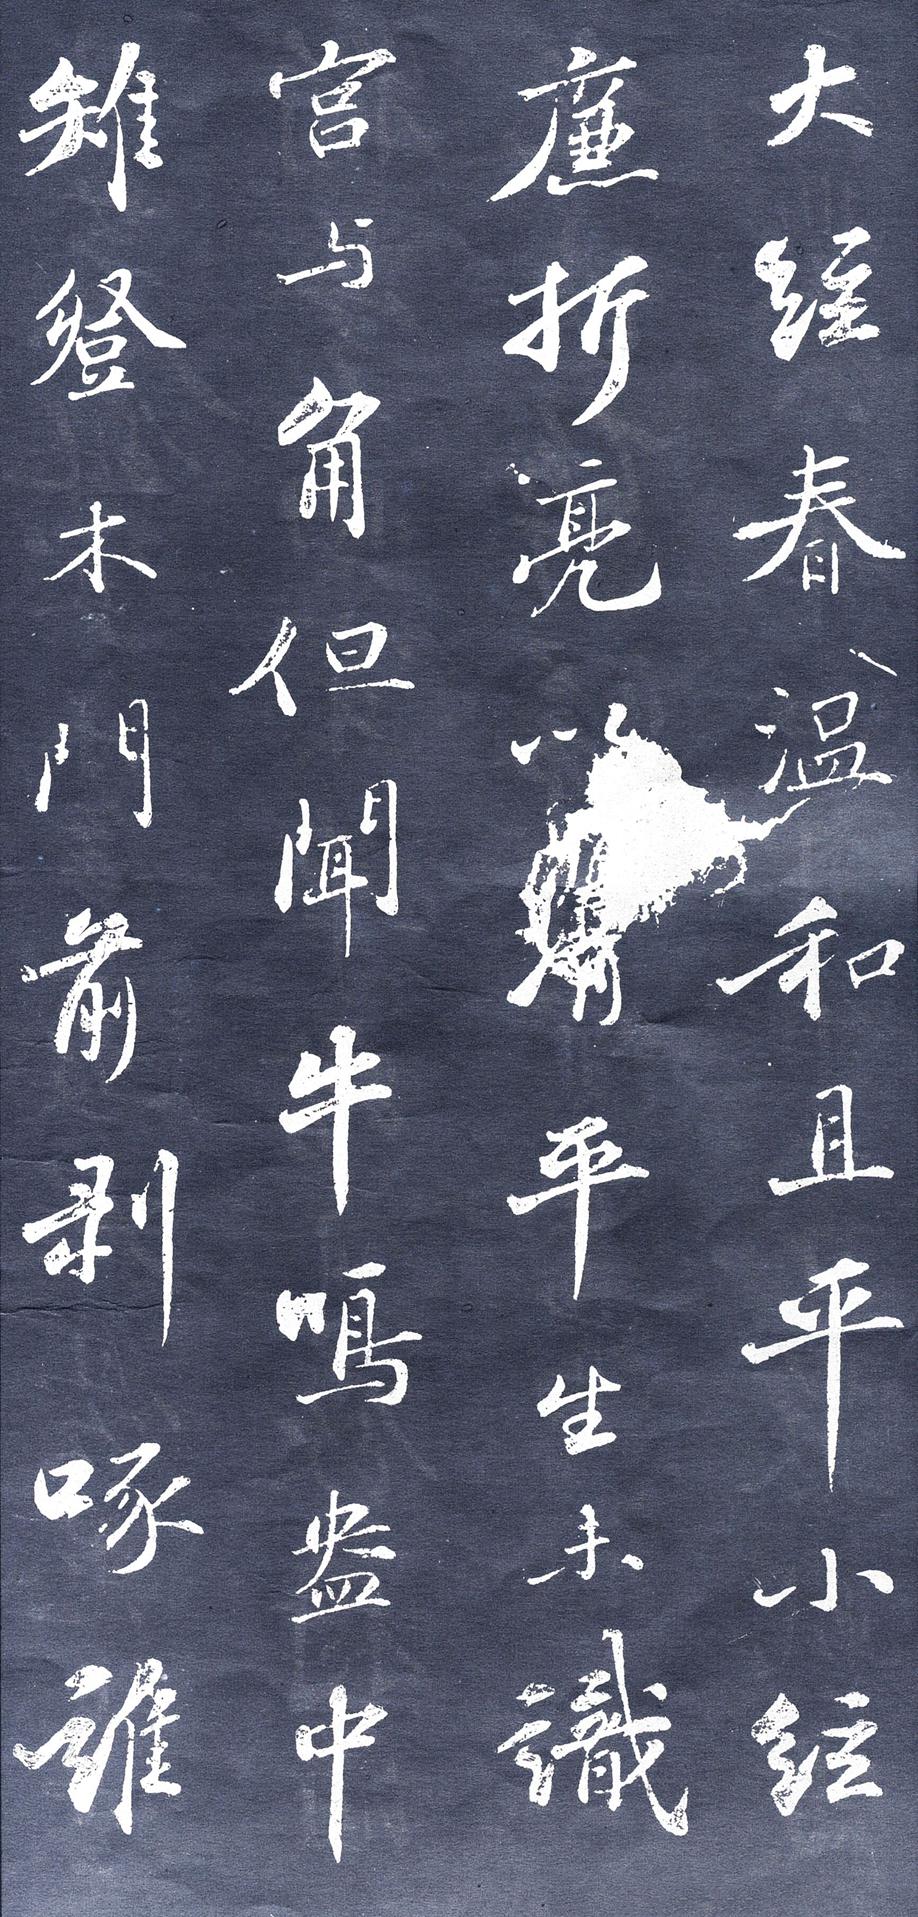 大絃春温和且平小絃
廉折亮以平生未識
宫与角但聞牛鳴盎中
雉登木門前剥啄誰